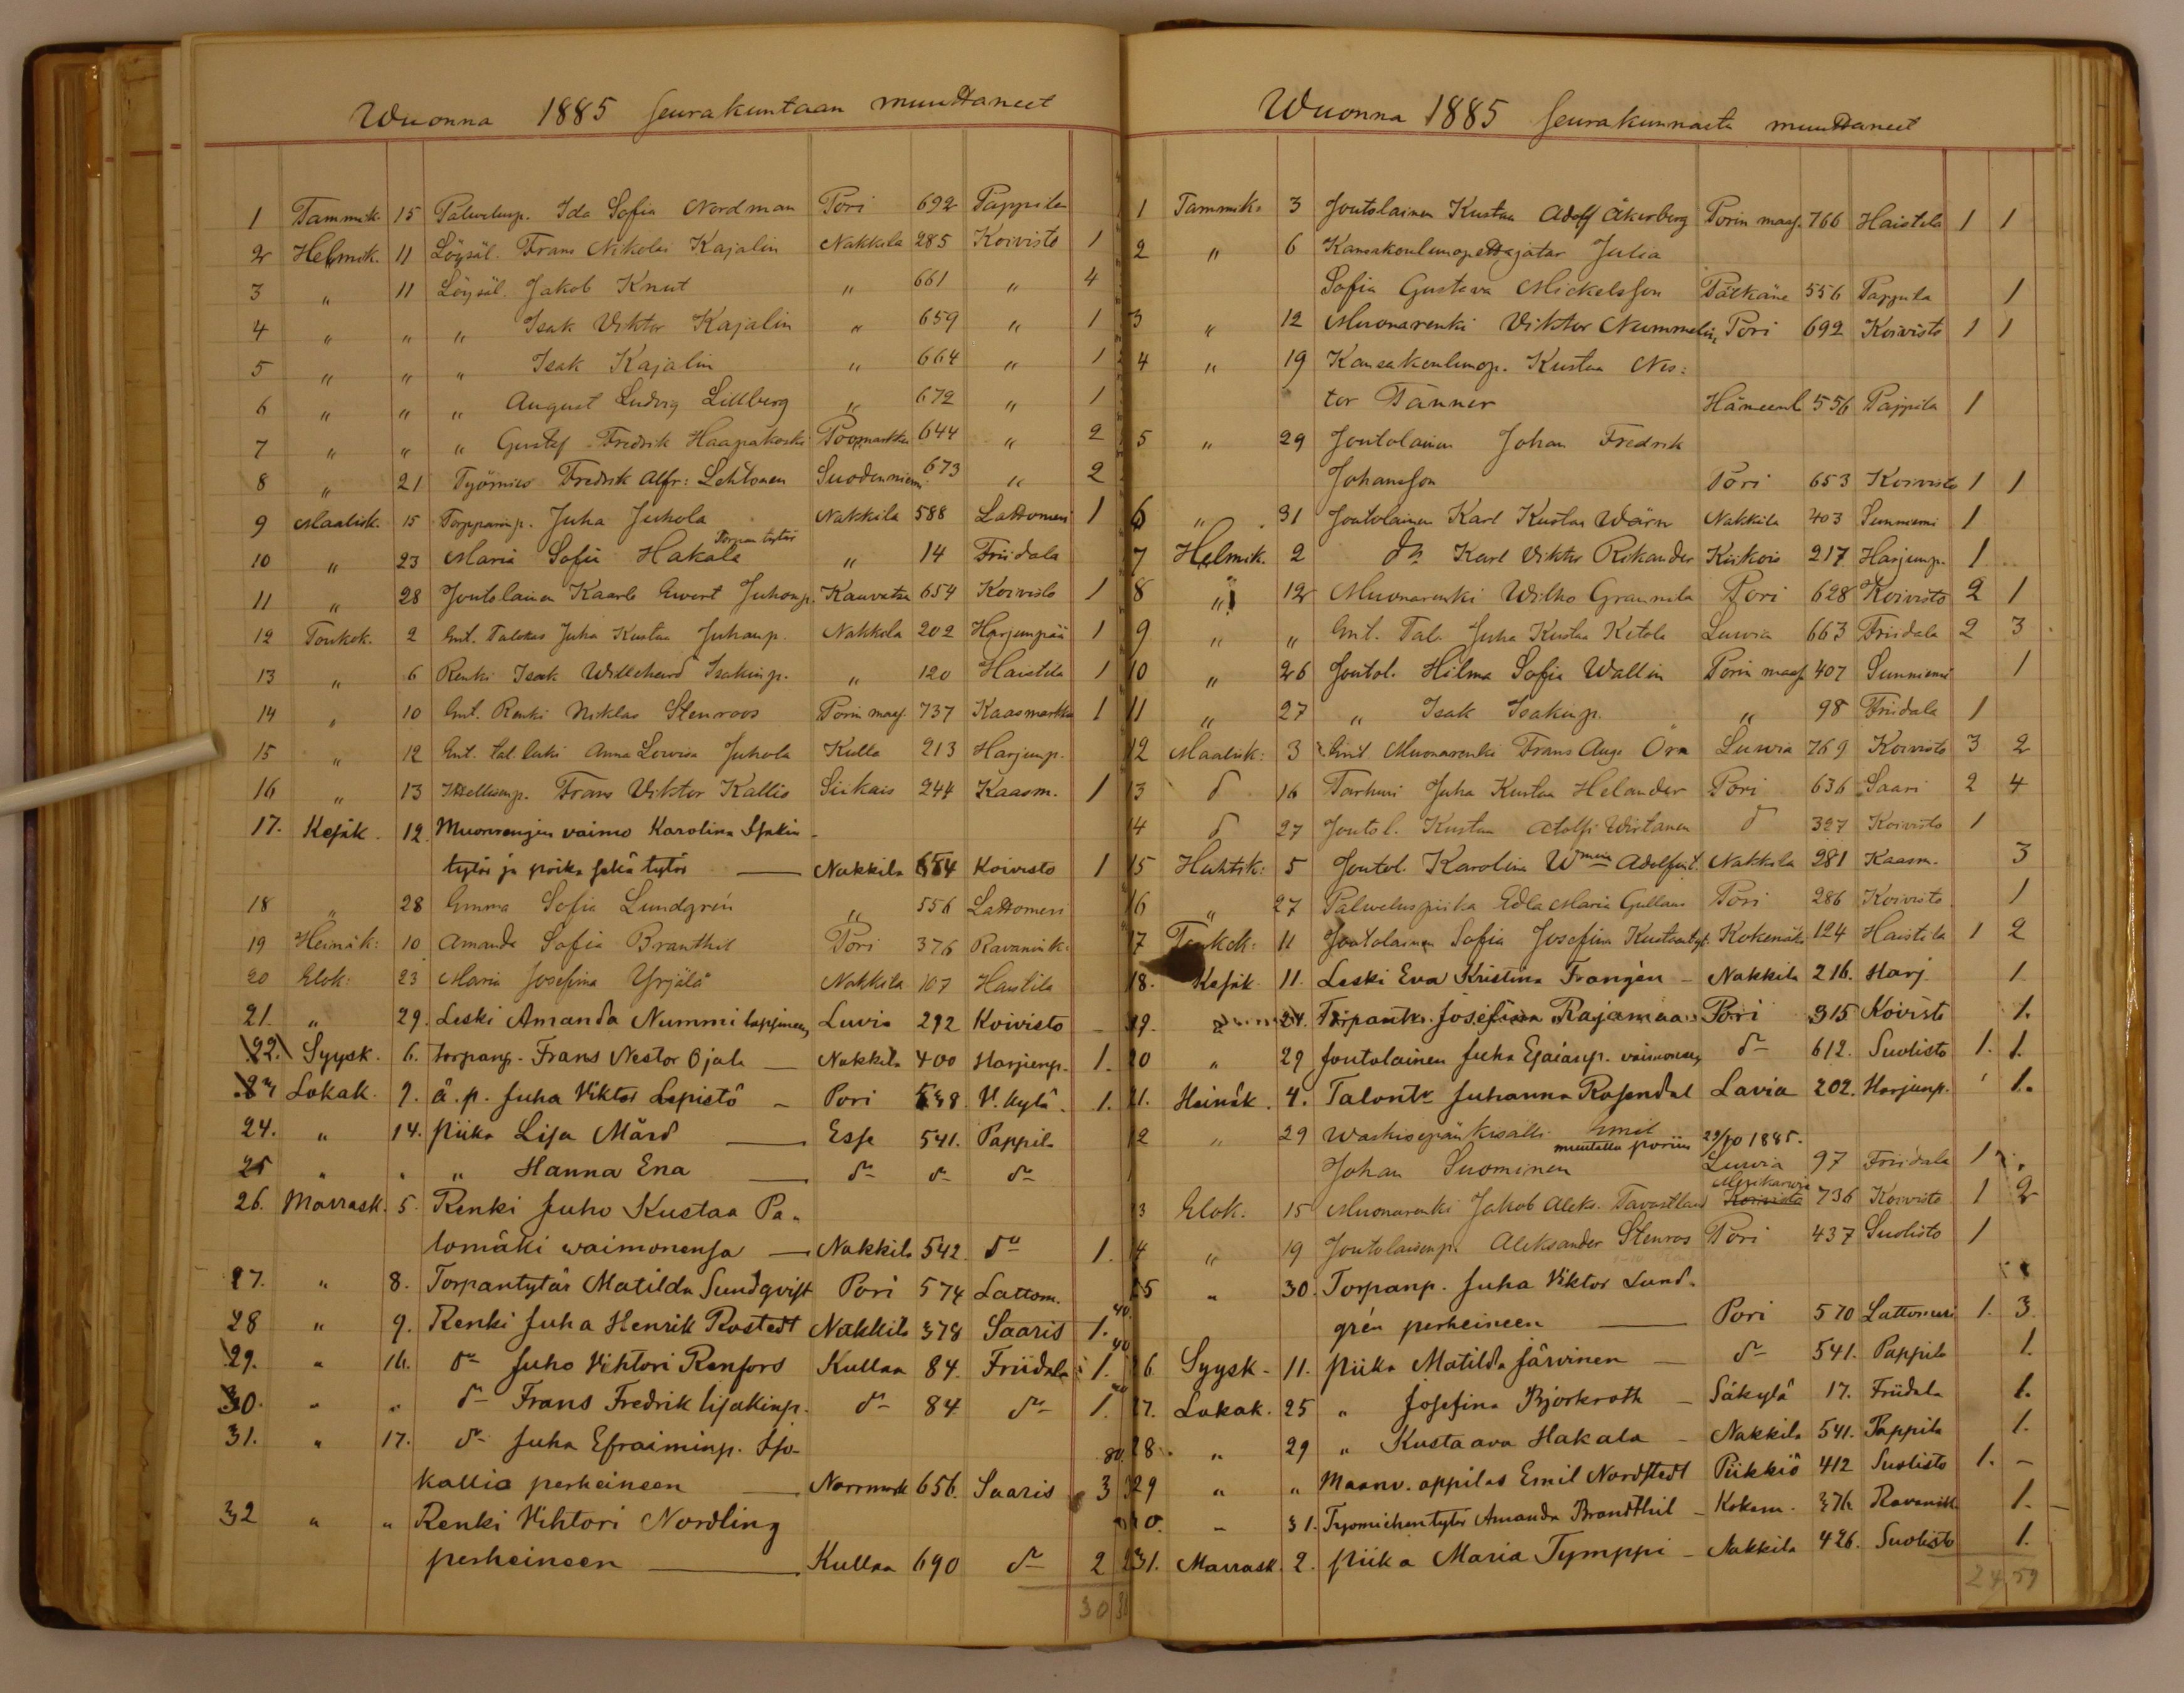 Wuonna 1885 seurakuntaan muuttaneet
1 Tammik. 15 Palvelusp. Ida Sofia Nordman Pori 692 Pappila
2 Helmik. 11 Löysäl. Frans Nikolai Kajalin Nakkila 285 Koivisto 1
3 " 11 Löysäl. Jakob Knut " 661 " 4
4 " " " Isak Viktor Kajalin " 659 " 1
5 " " " Isak Kajalin " 664 " 1
6 " " " August Ludvig Lillberg " 672 " 1
7 " " " Gustaf Fredrik Haapakoski Poomarkku 644 " 2
8 " 21 Työmies Fredrik Alfr: Lehtonen Suodenniemi 673 " 2
9 Maalisk. 15 Torpparinp. Juha Juhola Nakkila 588 Lattomeri 1
10 " 23 Maria Sofia Hakala Torpan tytär " 14 Friidala
11 " 28 Joutolainen Kaarlo Ewert Juhonp. Kauvatsa 654 Koivisto 1
12 Toukok. 2 Ent. Talokas Juha Kustaa Juhanp. Nakkila 202 Harjunpää 1
13 " 6 Renki Isak Willehard Isakinp. " 120 Haistila 1
14 " 10 Ent. Renki Niklas Stenroos Porin maas. 737 Kaasmarkku 1
15 " 12 Ent. tal. leski Anna Lovisa Juhola Kulla 213 Harjunp.
16 " 13 Itsellisenp. Frans Viktor Kallio Siikais 244 Kaasm. 1
17. Kesäk. 12. Muonrengin vaimo Karolina Isakin-
tytär ja poika sekä tytär — Nakkila 654 Koivisto 1
18 " 28 Emma Sofia Lundgrén " 556 Lattomeri
19 Heinäk: 10 Amanda Sofia Branthil Pori 376 Ravanik:
20 Elok: 23 Maria Josefina Yrjälä Nakkila 107 Haistila
21. " 29. Leski Amanda Nummi lapsineen Luvia 292 Koivisto —
22. Syysk. 6. torpanp. Frans Nestor Ojala — Nakkila 400 Harjunp. 1.
23 Lokak. 7. ä.p. Juha Viktor Lepistö — Pori 538. V. kylä. 1.
24. " 14. piika Lisa Mård — Esse 541. Pappila
25 " " " Hanna Ena — d:o d:o d:o
26. Marrask. 5. Renki Juho Kustaa Pa-
lomäki waimonensa — Nakkila 542. d:o 1.
27. " 8. Torpantytär Matilda Sundqvist Pori 574 Lattom.
28 " 9. Renki Juha Henrik Rostedt Nakkila 378 Saaris 1.
29. " 16. d:o Juho Vihtori Renfors Kullaa 84. Friidala 1.
30. " " d:o Frans Fredrik Iisakinp. d:o 84. d:o 1.
31. " 17. d:o Juha Efraiminp. Iso-
kallio perheineen — Norrmark 656. Saaris 3
32 " " Renki Vihtori Nordling
perheineen — Kullaa 690 d:o 2
30
Wuonna 1885 seurakunnasta muuttaneet
1 Tammik. 3 Joutolainen Kustaa Adolf Åkerberg Porin maas. 766 Haistila 1 1
2 " 6 Kansakoulunopettajatar Julia
Sofia Gustava Mickelsson Pälkäne 556 Pappila 1
3 " 12 Muonarenki Viktor Nummelin Pori 692 Koivisto 1 1
4 " 19 Kansakoulunop. Kustaa Nes:
tor Tanner Hämeenl 556 Pappila 1
5 " 29 Joutolainen Johan Fredrik
Johansson Pori 653 Koivisto 1 1
6 " 31 Joutolainen Karl Kustaa Wärn Nakkila 403 Sunniemi 1
7 Helmik. 2 d:o Karl Viktor Rikander Kiikois 217 Harjunp. 1
8 " 12 Muonarenki Wilho Grannila Pori 628 Koivisto 2 1
9 " " Ent. Tal. Juha Kustaa Ketola Luvia 663 Friidala 2 3
10 " 26 Joutol. Hilma Sofia Wallin Porin maas. 407 Sunniemi 1
11 " 27 " Isak Isakinp. " 98 Friidala 1
12 Maalisk: 3 Ent. Muonarenki Frans Aug. Öra Luvia 769 Koivisto 3 2
13 d:o 16 Torhuri Juha Kustaa Helander Pori 636 Saari 2 4
14 d:o 27 Joutol. Kustaa Adolfi Wirtanen d:o 327 Koivisto 1
15 Huhtik: 5 Joutol. Karolina Adolfint. Nakkila 281 Kaasm. 3
16 " 27 Palveluspiika Edla Maria Gullans Pori 286 Koivisto 1
17 Toukok: 11 Joutolainen Sofia Josefina Kustaantyt. Kokemäki 124 Haistila 1 2
18. Kesäk. 11. Leski Eva Kristina Frangén — Nakkila 216. Harj. 1
19. 24. Torpantr. Josefina Rajamaa Pori 315 Koivisto 1.
20 " 29 Joutolainen Juha Esaianp. vaimoneen d:o 612. Suolisto 1. 1.
21. Heinäk. 4. Talontr Juhanna Rosendal Lavia 202. Harjunp. 1.
22 " 29 Waskisepän kisälli Emil muutettu poriin 29/10 1885.
Johan Suominen Luvia 97 Friidala 1
23 Elok. 15 Muonarenki Jakob Aleks. Tavastland Merikarvia 736 Koivisto 1 2
24 " 19 Joutolaisenp. Aleksander Stenros Pori 437 Suolisto 1
25 " 30. Torpanp. Juha Viktor Lund-
grén perheineen — Pori 570 Lattomeri 1. 3.
26 Syysk. 11. piika Matilda Järvinen — d:o 541. Pappila 1.
27. Lokak. 25 " Josefina Björkroth — Säkylä 17. Friidala 1.
28. " 29 " Kustaava Hakala — Nakkila 541. Pappila 1.
29 " " Maanv. oppilas Emil Nordstedt Piikkiö 412 Suolisto 1. —
30. — 31. Tyomiehentytär Amanda Brandthil — Kokem. 376 Ravanik 1.
31. Marrask. 2. piika Maria Tymppi — Nakkila 426. Suolisto 1.
24 59